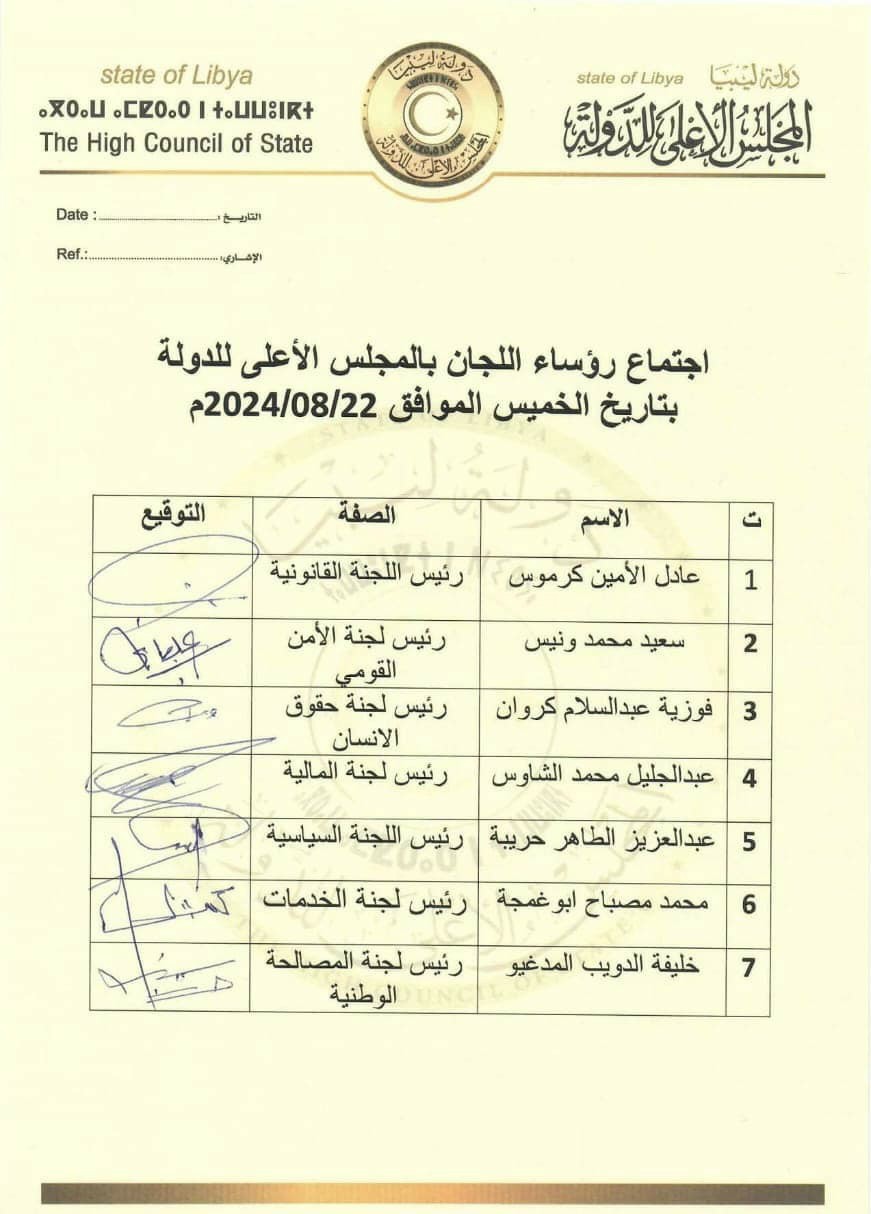 state of Libya
ⴰⴳⵔⴰⵡ ⴰⵎⵇⵔⴰⵏ ⵏ ⵜⴰⵡⵡⵓⵏⴽⵜ
The High Council of State
دولة ليبيا
المجلس الأعلى للدولة
state of Libya دولة ليبيا
المجلس الأعلى للدولة
Date : التاريخ :
Ref.: الإشاري:
اجتماع رؤساء اللجان بالمجلس الأعلى للدولة
بتاريخ الخميس الموافق 2024/08/22م
ت الاسم الصفة التوقيع
1 عادل الأمين كرموس رئيس اللجنة القانونية
2 سعيد محمد ونيس رئيس لجنة الأمن
القومي
3 فوزية عبدالسلام كروان رئيس لجنة حقوق
الانسان
4 عبدالجليل محمد الشاوس رئيس لجنة المالية
5 عبدالعزيز الطاهر حريبة رئيس اللجنة السياسية
6 محمد مصباح ابوغمجة رئيس لجنة الخدمات
7 خليفة الدويب المدغيو رئيس لجنة المصالحة
الوطنية